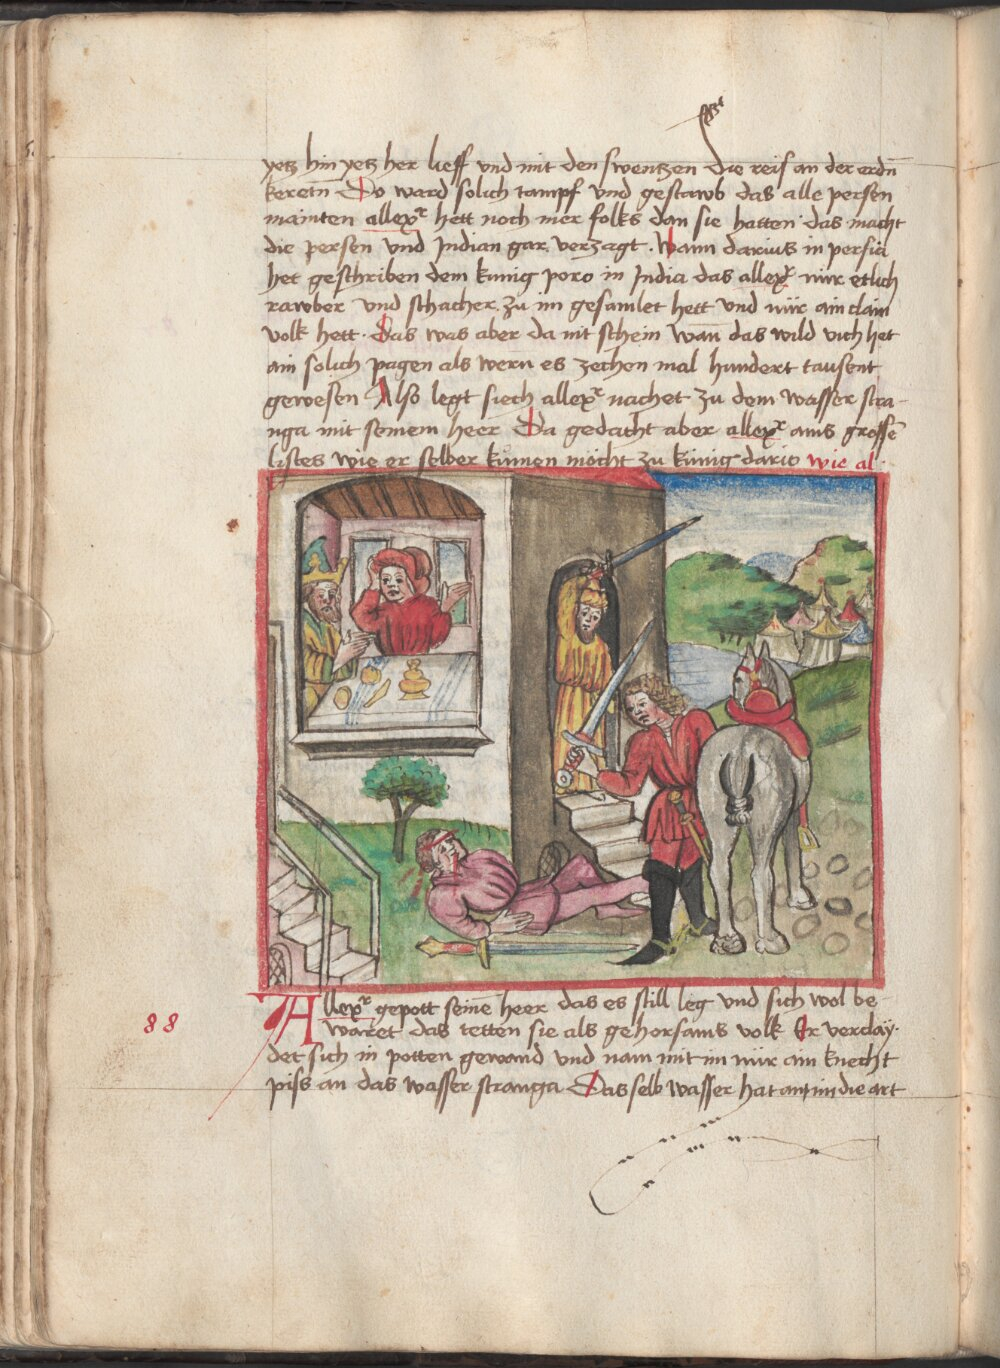 yetz hin yetz her lieff und mit den swentzen die reis an der erdn̄
keretn̄ Do ward solich tampf und gestawb das alle persen
mainten allexr hett noch mer folks dan sie hatten · das macht
die persen und Indian gar verzagt . Wann darius in persia
het geschriben dem kunig poro in India das allexr nür etlich
rawber und schacher zu im gesamlet hett und nür ain clain
volk hett · Das was aber da nit schein wan̄ das wild vich het
ain solich pagen als wern es zechen mal hundert tausent
gewesen Also legt siech allexr nachet zu dem wasser stra-
nga mit seinem heer Da gedacht aber allexr ains grossē
listes wie er selber kumen möcht zu künig dario wie al
Allexr gepott seinē heer das es still leg und sich wol be-
waret das tetten sie als gehorsams volk Er verclay-
det sich in potten gewand und nam mit im nür ain knecht
piss an das wasser stranga Das selb wasser hat an im die art
88